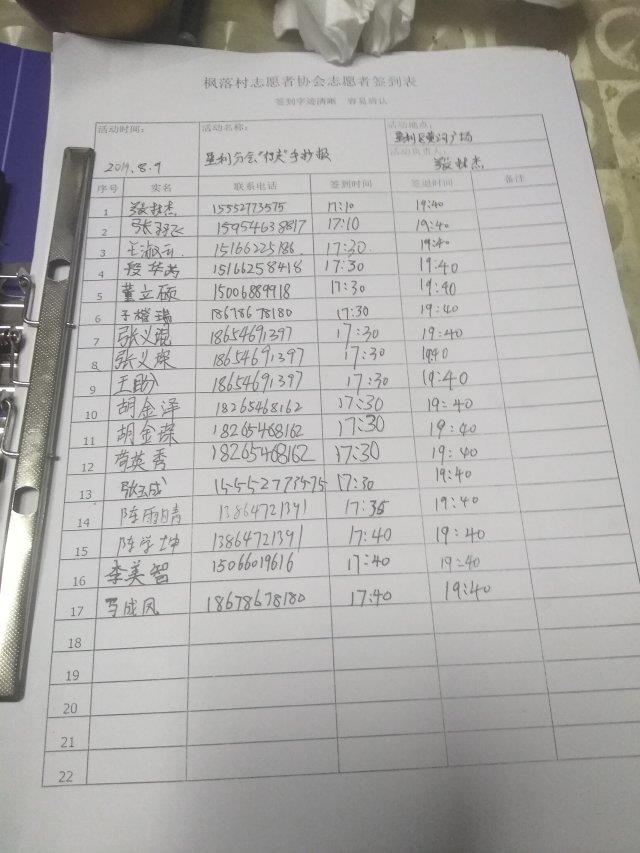 枫落村志愿者协会志愿者签到表
签到字迹清晰 容易辨认
活动时间: 活动名称: 活动地点:
垦利区黄河广场
2019.8.9 垦利分会 手抄报 活动负责人:
序号 实名 联系电话 签到时间 签退时间 备注
1 15552773575 17:10 19:40
2 张羽飞 15954638817 17:10 19:40
3 王淑云 15166225186 17:20. 19:40
4 15166258418 17:30 19:40
5 董立硕 15006889918 17:30 19:40
6 18678678180 17:30 19:40
7 张义琨 18654691397 17:30 19:40
8 张义琛 18654691397 17:30 19:40
9 王盼 18654691397 17:30 19:40
10 胡金泽 18265468162 17:30 19:40
11 胡金琛 18265468162 17:30 19:40
12 苟英秀 18265468162 17:30 19:40
13 15552773575 17:30 19:40
14 陈雨晴 13864721391 17:35 19:40
15 陈学坤 13864721391 17:40 19:40
16 李美智 15066019616 17:40 19:40
17 马成凤 18678678180 17:40 19:40
18
19
20
21
22